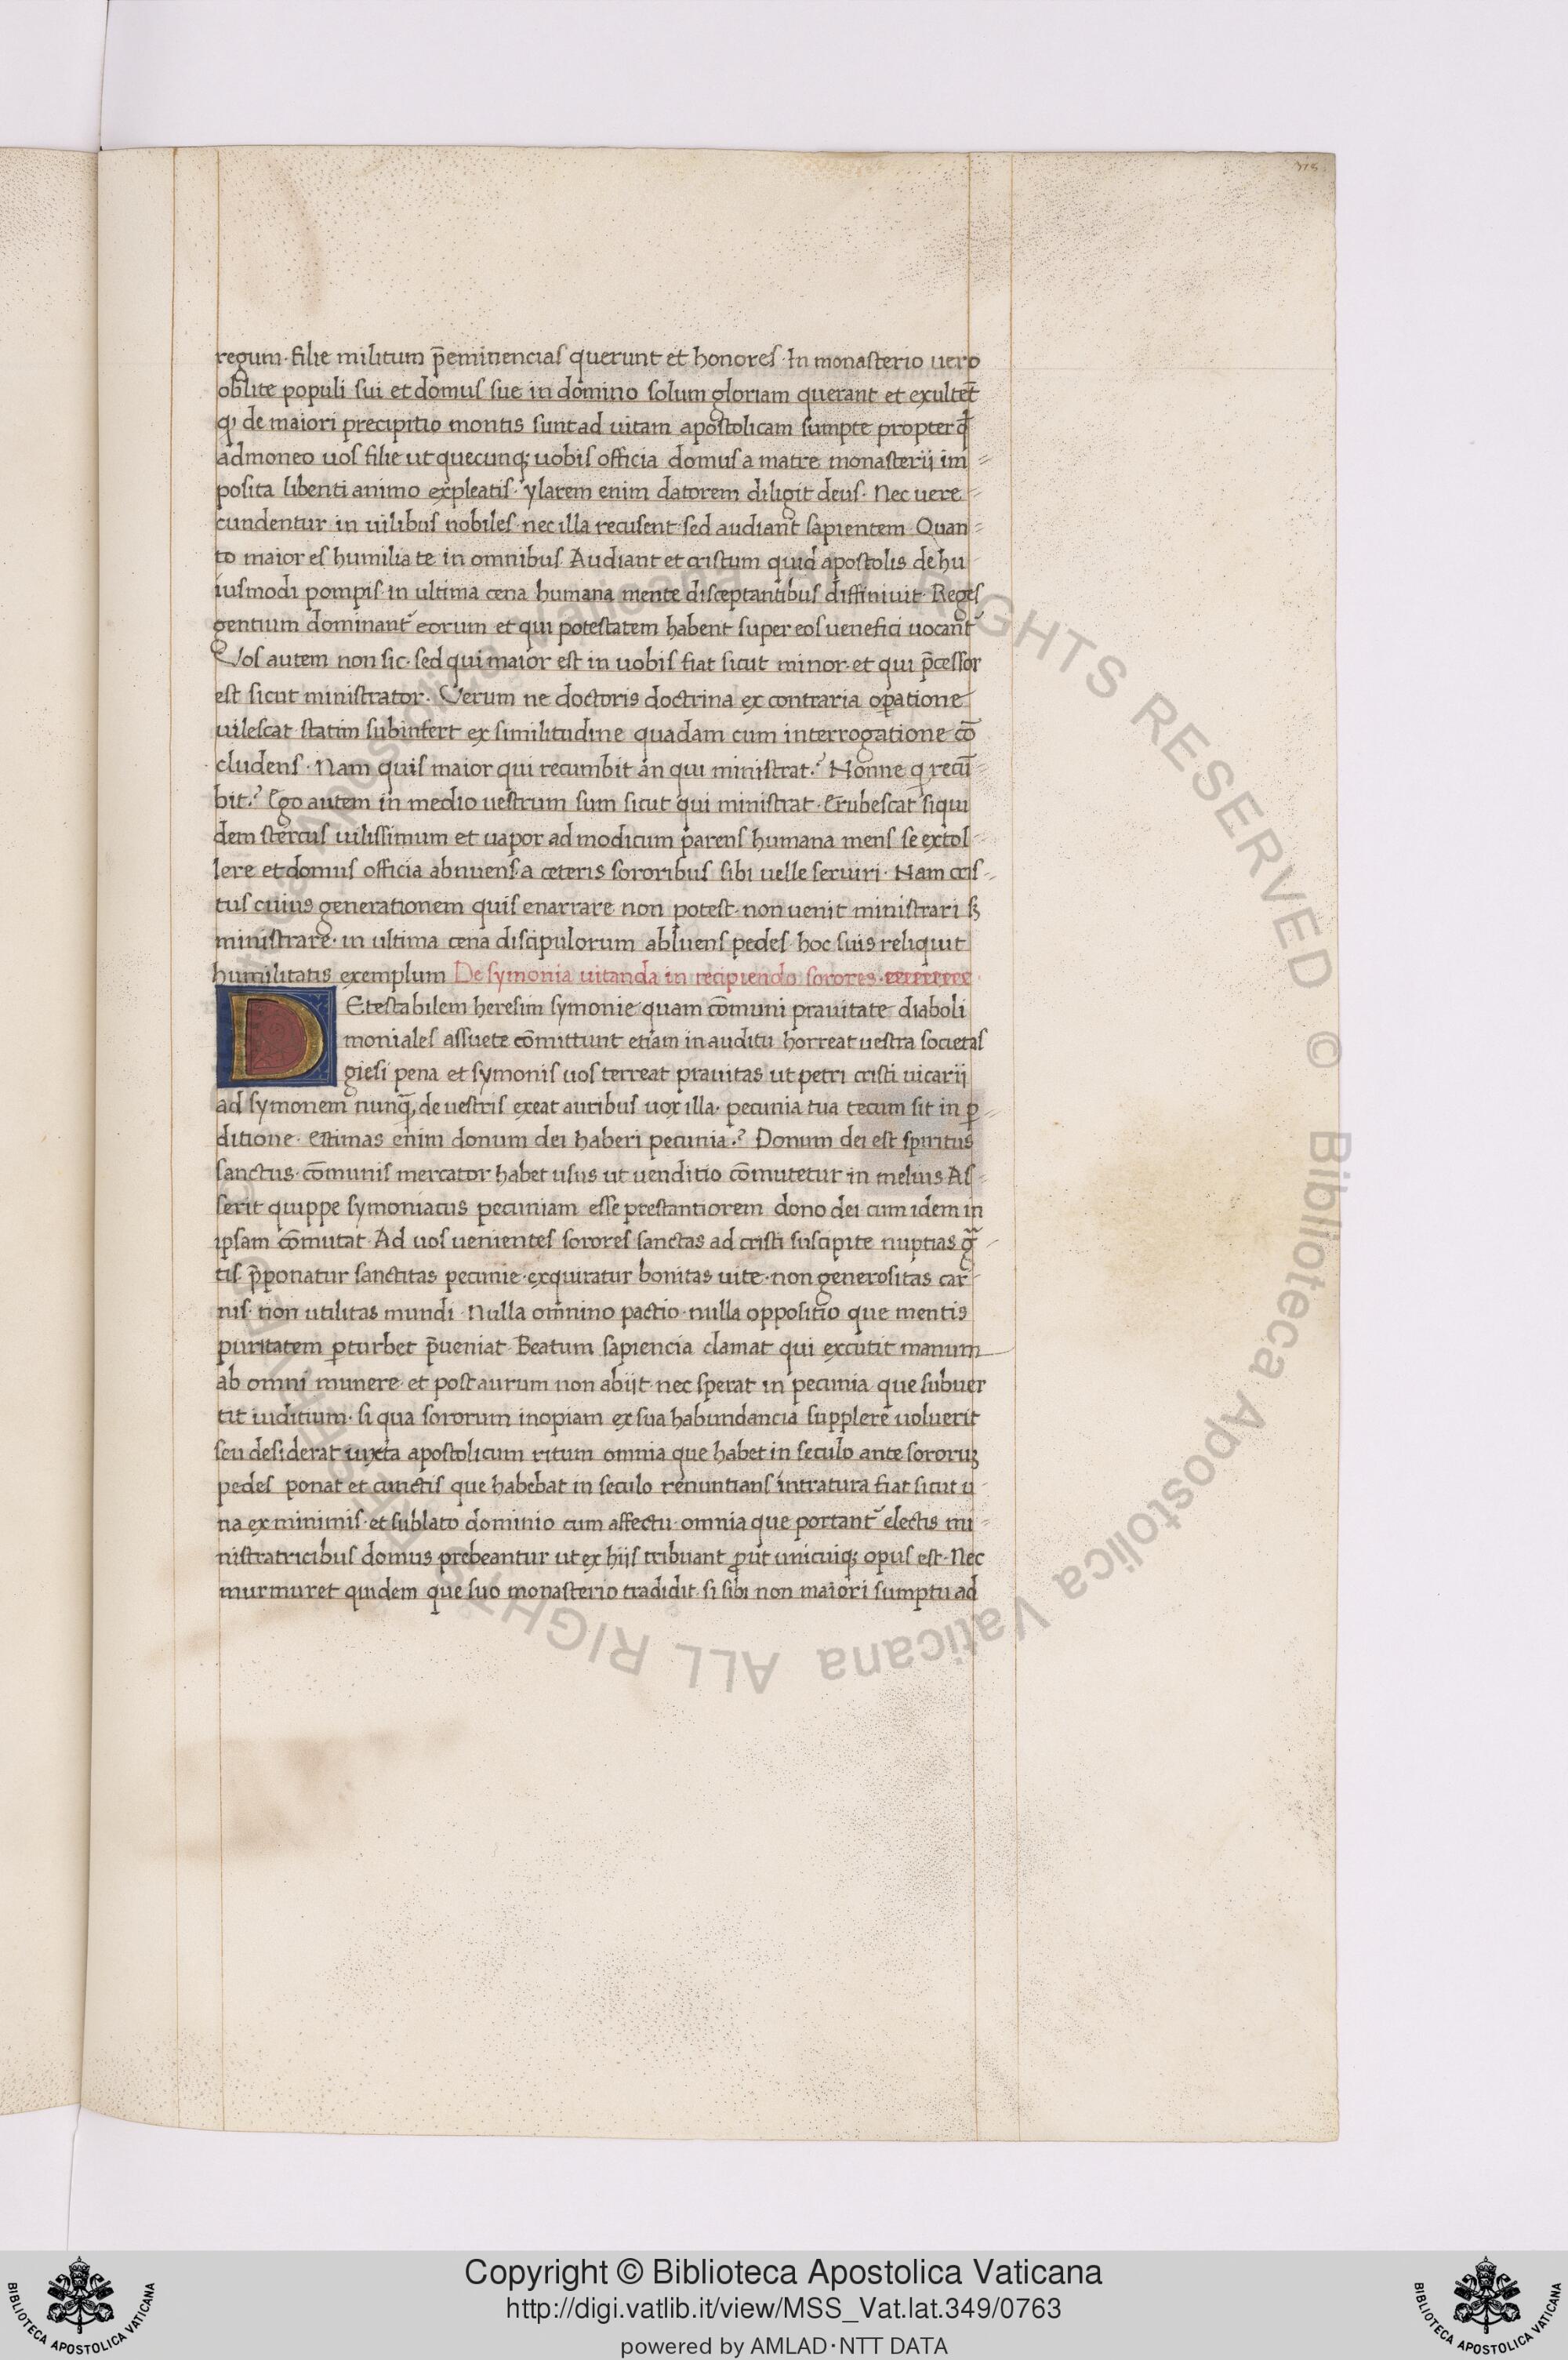 regum· filie militum p̄eminencias querunt et honores· In monasterio uero
oblite populi sui et domus sue in domino solum gloriam querant et exultēt
de maiori precipitio montis sunt ad uitam apostolicam sumpte propter qđ
admoneo uos filie ut quecunqꝫ uobis officia domus a matre monasterij im
posita libenti animo expleatis· ylarem enim datorem diligit deus· Nec uere
cundentur in uilibus nobiles· nec illa recusent· sed audiant sapientem· Quan
to maior es humilia te in omnibus· Audiant et cristum quid apostolis de hu
iusmodi pompis· in ultima cena humana mente disceptantibus diffiniuit· Reges
gentium dominant᷑ eorum et qui potestatem habent super eos uenefici uocant᷑
Vos autem non sic· sed qui maior est in uobis fiat sicut minor· et qui p̄cessor
est sicut ministrator· Verum ne doctoris doctrina ex contraria oꝑatione
uilescat statim subinfert ex similitudine quadam cum interrogatione cō
cludens· Nam quis maior qui recumbit an qui ministrat? Nonne q recū
bit? Ego autem in medio uestrum sum sicut qui ministrat· Erubescat siqui
dem stercus uilissimum et uapor ad modicum parens humana mens se extol
lere et domus officia abnuens· a ceteris sororibus sibi uelle seruiri· Nam cris
tus cuius generationem quis enarrare non potest· non uenit ministrari sꝫ
ministrare· in ultima cena discipulorum abluens pedes· hoc suis reliquit
humilitatis exemplum De symonia uitanda in recipiendo sorores·
Detestabilem heresim symonie quam cōmuni prauitate diaboli
moniales assuete cōmittunt etiam in auditu horreat uestra societas
giesi pena et symonis uos terreat prauitas ut petri cristi uicarij
ad symonem nunq̄, de uestris exeat auribus uox illa· pecunia tua tecum sit in ꝑ
ditione· Estimas enim donum dei haberi pecunia? Donum dei est spiritus
sanctus· cōmunis mercator habet usus ut uenditio cōmutetur in melius As
serit quippe symoniacus pecuniam esse prestantiorem dono dei cum idem in
ipsam cōmutat· Ad uos uenientes sorores sanctas ad cristi suscipite nuptias gra
tis· p̄ponatur sanctitas pecunie· exquiratur bonitas uite· non generositas car
nis· non utilitas mundi· Nulla omnino pactio· nulla oppositio que mentis
puritatem ꝑturbet p̄ueniat· Beatum sapiencia clamat qui excutit manum
ab omni munere· et post aurum non abijt· nec sperat in pecunia que subuer
tit iuditium· si qua sororum inopiam ex sua habundancia supplere uoluerit
seu desiderat iuxta apostolicum ritum omnia que habet in seculo ante sororuꝫ
pedes ponat et cunctis que habebat in seculo renuntians intratura fiat sicut u
na ex minimis· et sublato dominio cum affectu· omnia que portant᷑ electis mi
nistratricibus domus prebeantur ut ex hijs tribuant ꝓut unicuiqꝫ opus est· Nec
murmuret quidem que suo monasterio tradidit· si sibi non maiori sumptu ad
Biblioteca Apostolica Vaticana ALL RIGHTS RESERVED © Biblioteca Apostolica Vaticana ALL RIGHTS
Copyright © Biblioteca Apostolica Vaticana
http://digi.vatlib.it/view/MSS_Vat.lat.349/0763
powered by AMLAD·NTT DATA
BIBLIOTECA APOSTOLICA VATICANA
BIBLIOTECA APOSTOLICA VATICANA